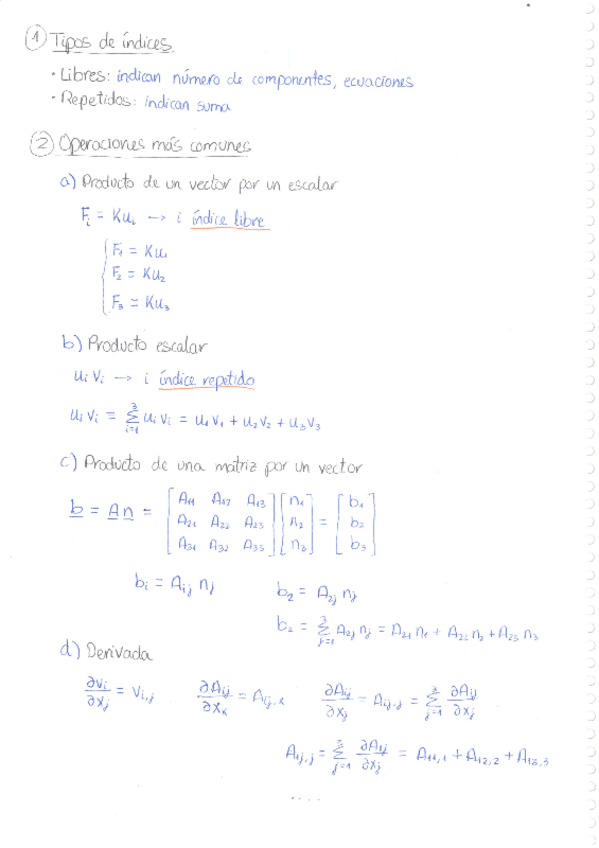 ① Tipos de índices
· Libres: indican número de componentes, ecuaciones
· Repetidos: indican suma
② Operaciones más comunes
a) Producto de un vector por un escalar
F_i = Ku_i → i índice libre
F_1 = Ku_1
F_2 = Ku_2
F_3 = Ku_3
b) Producto escalar
u_i v_i → i índice repetido
u_i v_i = Σ_{i=1}^{3} u_i v_i = u_1 v_1 + u_2 v_2 + u_3 v_3
c) Producto de una matriz por un vector
b = A n = [A_11 A_12 A_13; A_21 A_22 A_23; A_31 A_32 A_33] [n_1; n_2; n_3] = [b_1; b_2; b_3]
b_i = A_ij n_j b_2 = A_2j n_j
b_2 = Σ_{j=1}^{3} A_2j n_j = A_21 n_1 + A_22 n_2 + A_23 n_3
d) Derivada
∂v_i/∂x_j = v_i,j ∂A_ij/∂x_k = A_ij,k ∂A_ij/∂x_j = A_ij,j = Σ_{j=1}^{3} ∂A_ij/∂x_j
A_1j,j = Σ_{j=1}^{3} ∂A_1j/∂x_j = A_11,1 + A_12,2 + A_13,3
....